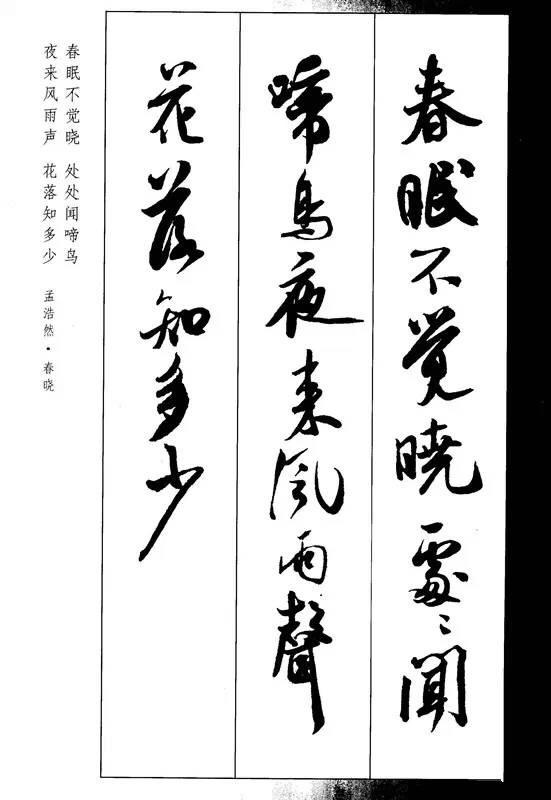 春眠不觉晓處〻闻
啼鸟夜来風雨聲
花落知多少
春眠不觉晓 处处闻啼鸟
夜来风雨声 花落知多少 孟浩然·春晓